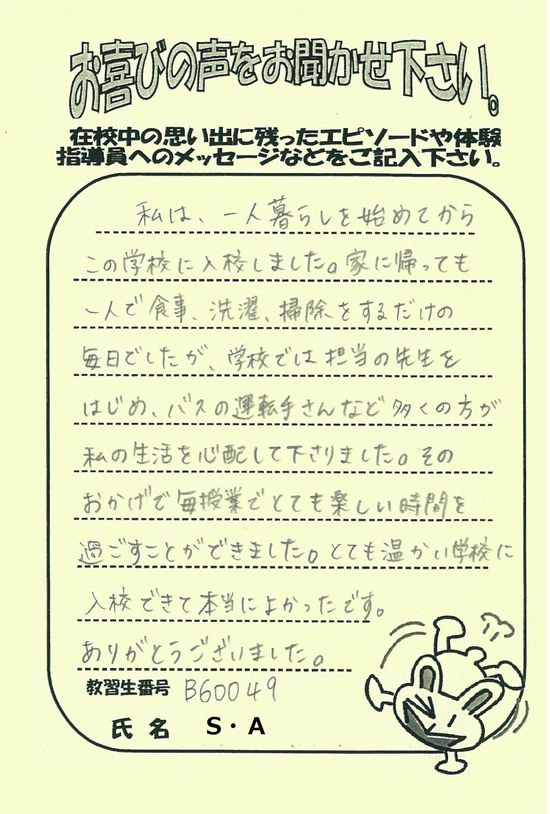 お喜びの声をお聞かせ下さい。
在校中の思い出に残ったエピソードや体験
指導員へのメッセージなどをご記入下さい。
私は、一人暮らしを始めてから
この学校に入校しました。家に帰っても
一人で食事、洗濯、掃除をするだけの
毎日でしたが、学校では担当の先生を
はじめ、バスの運転手さんなど多くの方が
私の生活を心配して下さりました。その
おかげで毎授業でとても楽しい時間を
過ごすことができました。とても温かい学校に
入校できて本当によかったです。
ありがとうございました。
教習生番号 B60049
氏名 S・A